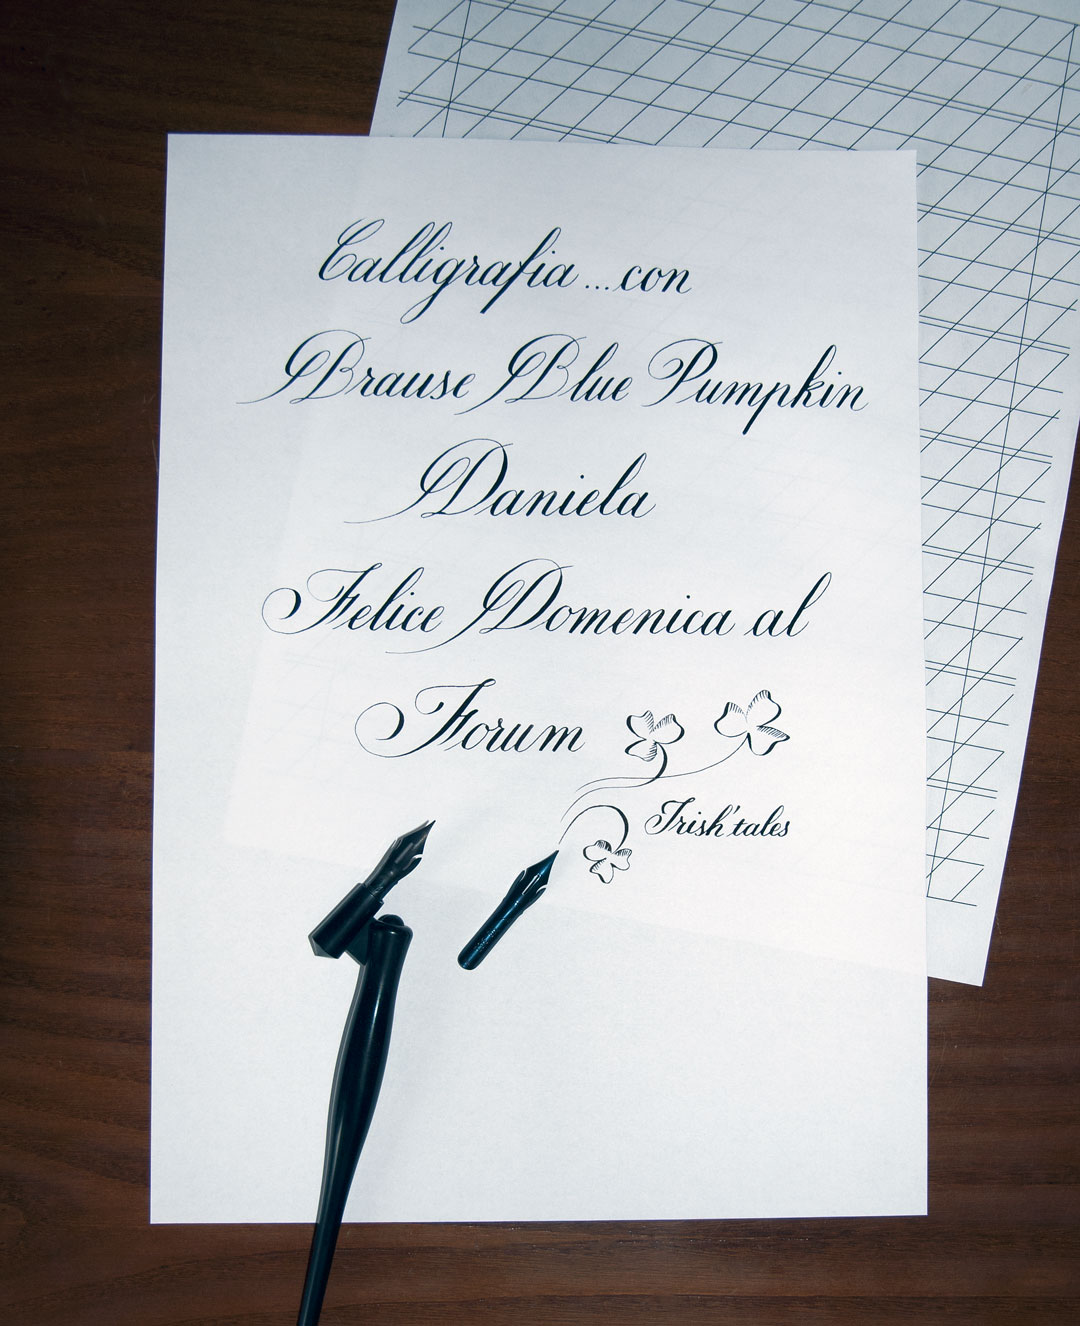 Calligrafia ... con
Brause Blue Pumpkin
Daniela
Felice Domenica al
Forum
Irish'tales